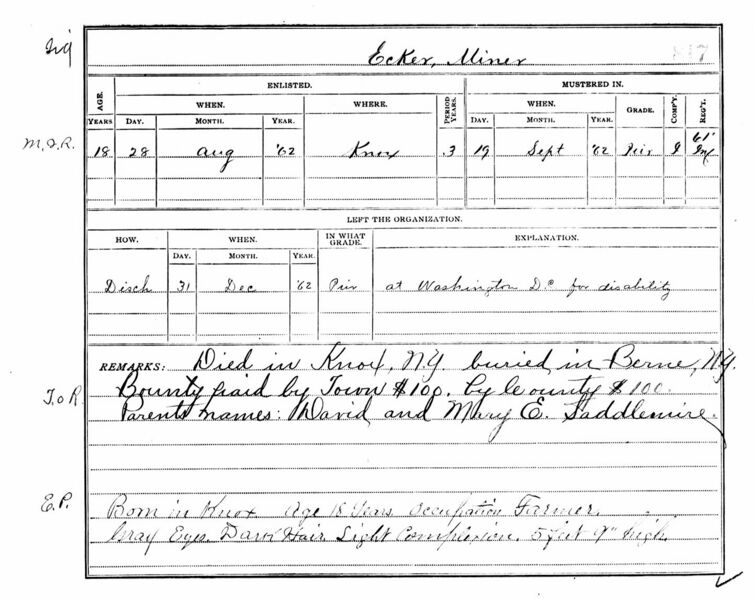 Ecker, Miner 817
ENLISTED. MUSTERED IN.
AGE. WHEN. WHERE. PERIOD WHEN. GRADE. COMP'Y. REG'T.
YEARS DAY. MONTH. YEAR. YEARS. DAY. MONTH. YEAR.
61'
M.I.R. 18 28 Aug '62 Knox 3 19 Sept '62 Priv I Inf
LEFT THE ORGANIZATION.
HOW. WHEN. IN WHAT GRADE. EXPLANATION.
DAY. MONTH. YEAR.
Disch 31 Dec '62 Priv at Washington D.C. for disability
REMARKS: Died in Knox, N.Y. buried in Berne, N.Y.
T.o R. Bounty paid by Town $100. by County $100.
Parents names: David and Mary E. Saddlemire.
E.P. Born in Knox Age 18 Years Occupation Farmer.
Gray Eyes, Dark Hair, Light Complexion. 5 feet 9" high